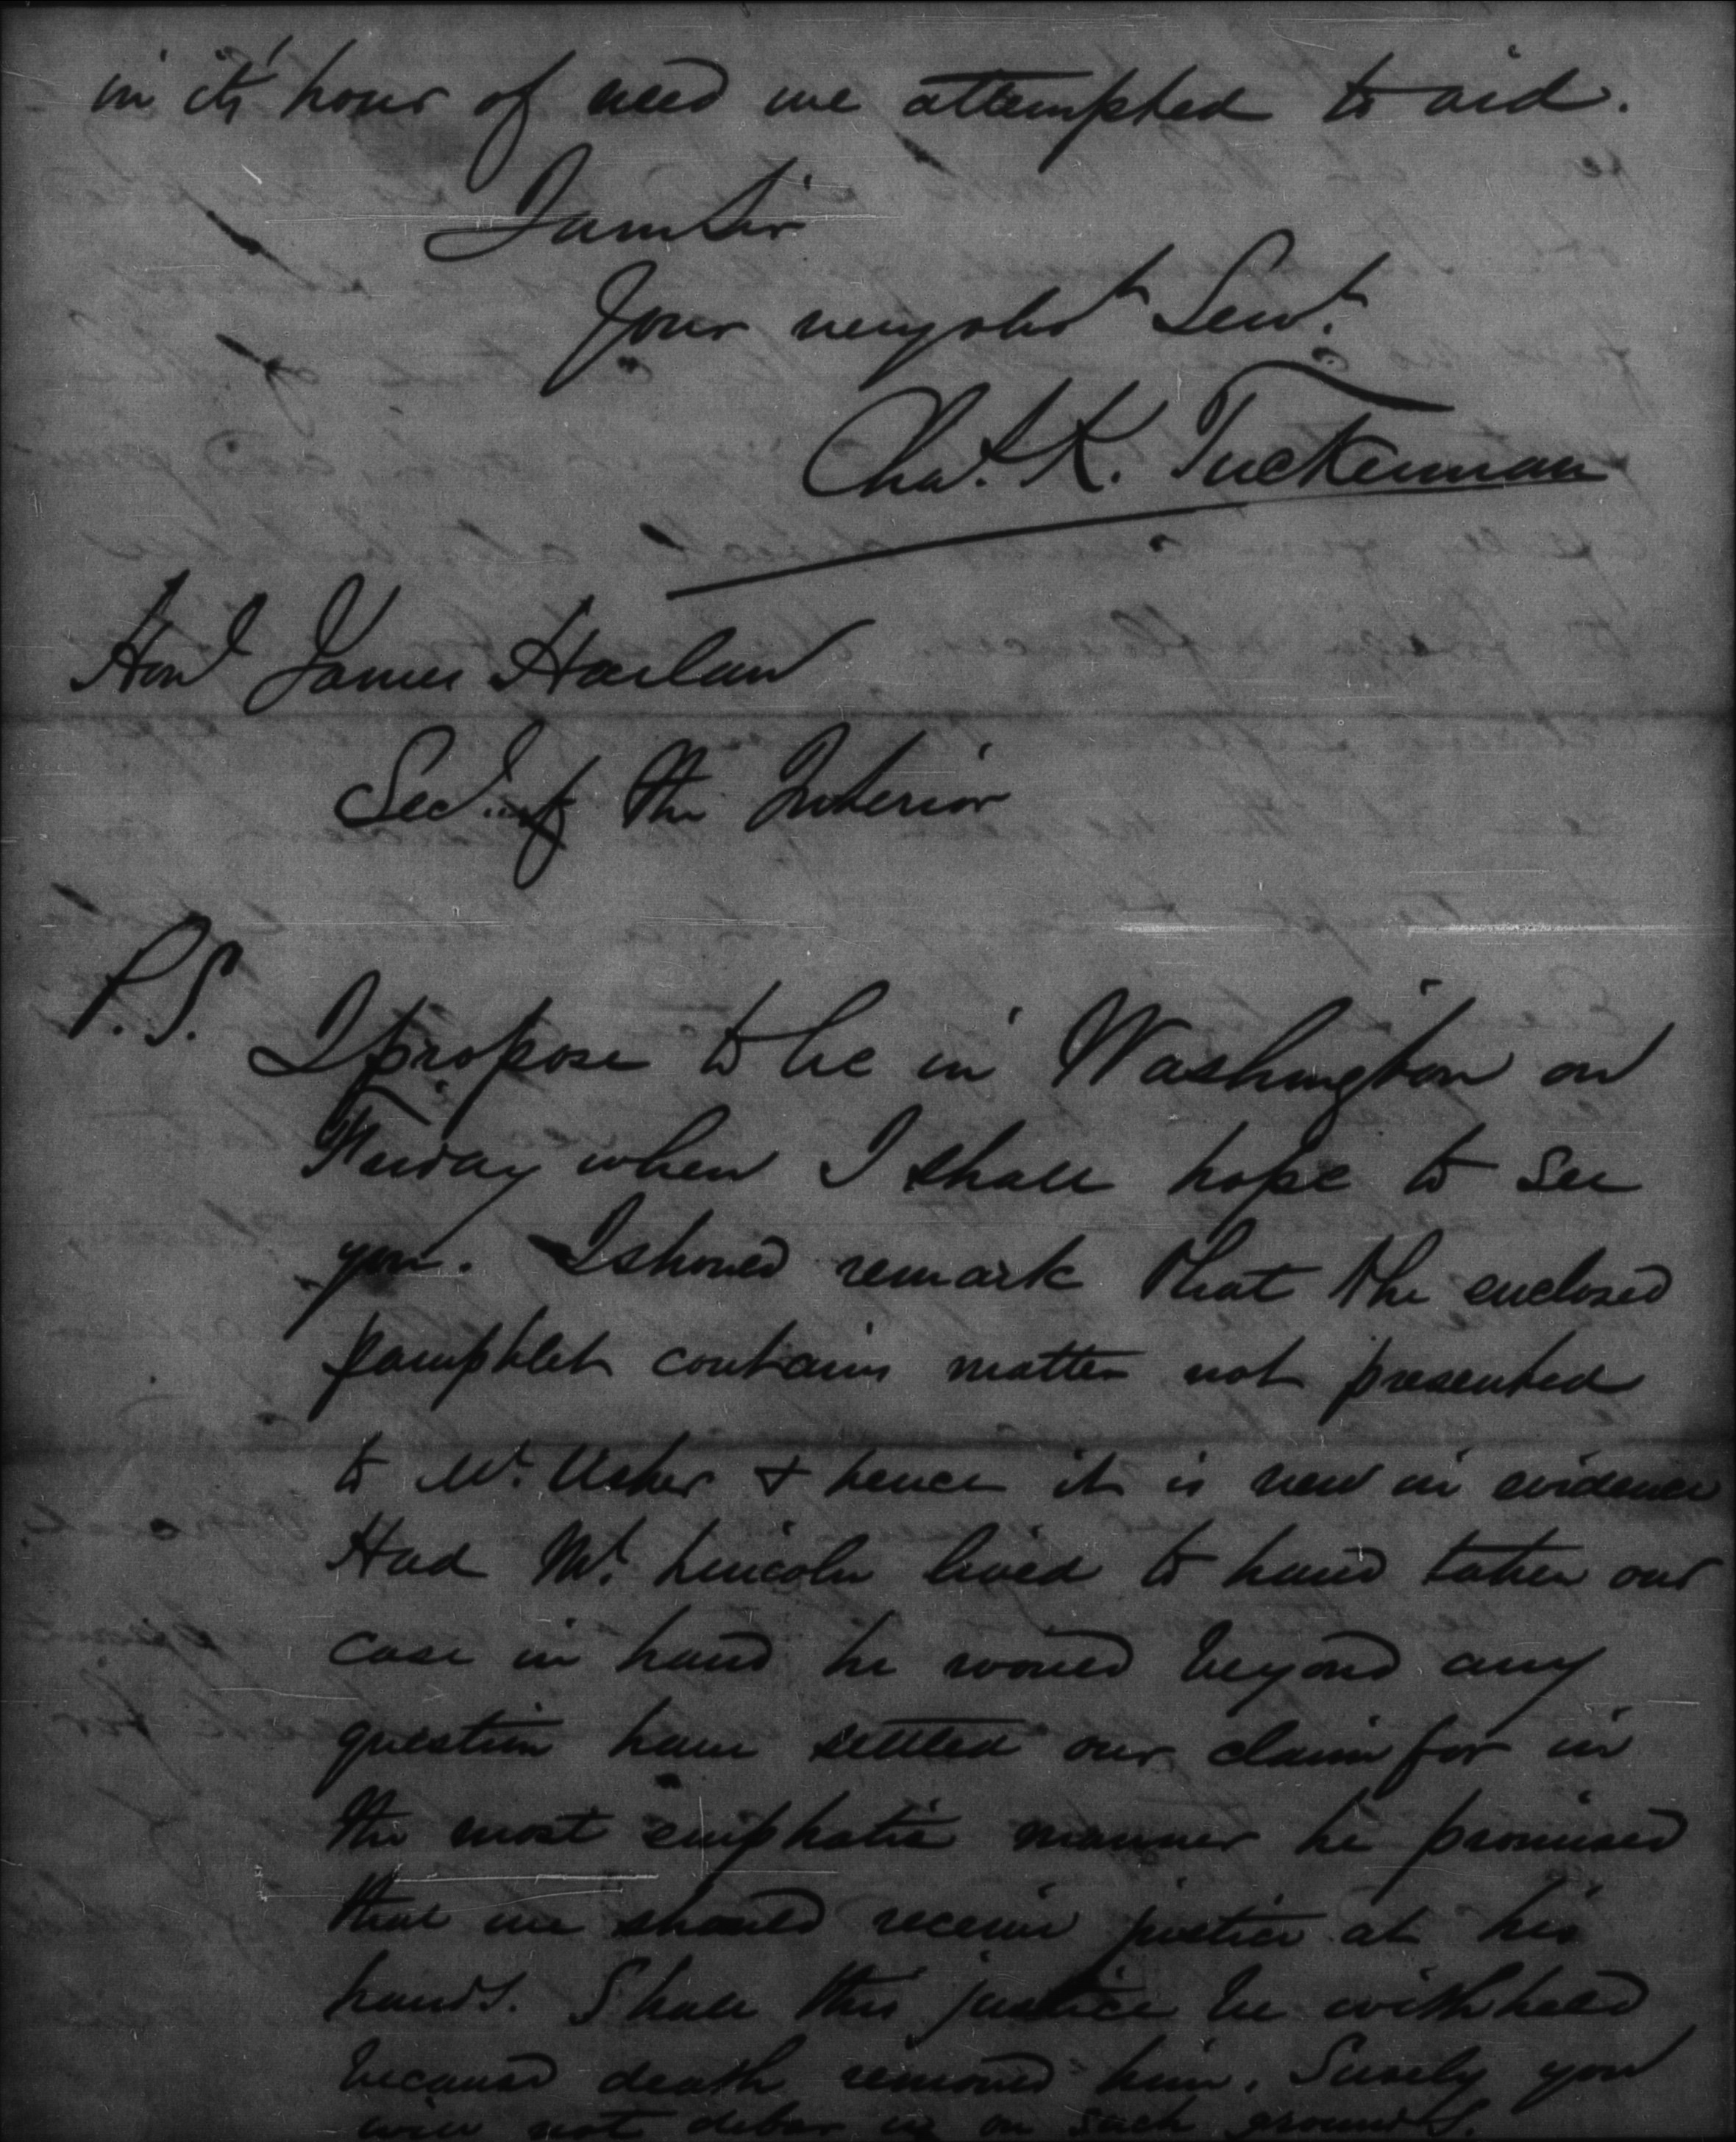 in its' hour of need we attempted to aid.
I am Sir
Your very obt Servt.
Chas. K. Tuckerman
Honl James Harlan
Secy. of the Interior
P.S.
I propose to be in Washington on
Friday when I shall hope to see
you. I should remark that the enclosed
pamphlet contains matter not presented
to Mr. Usher & hence it is new in evidence
Had Mr. Lincoln lived to have taken our
case in hand he would beyond any
question have settled our claim for in
the most emphatic manner he promised
that we should receive justice at his
hands. Shall this justice be withheld
because death removed him. Surely you
will not debar us on such grounds.